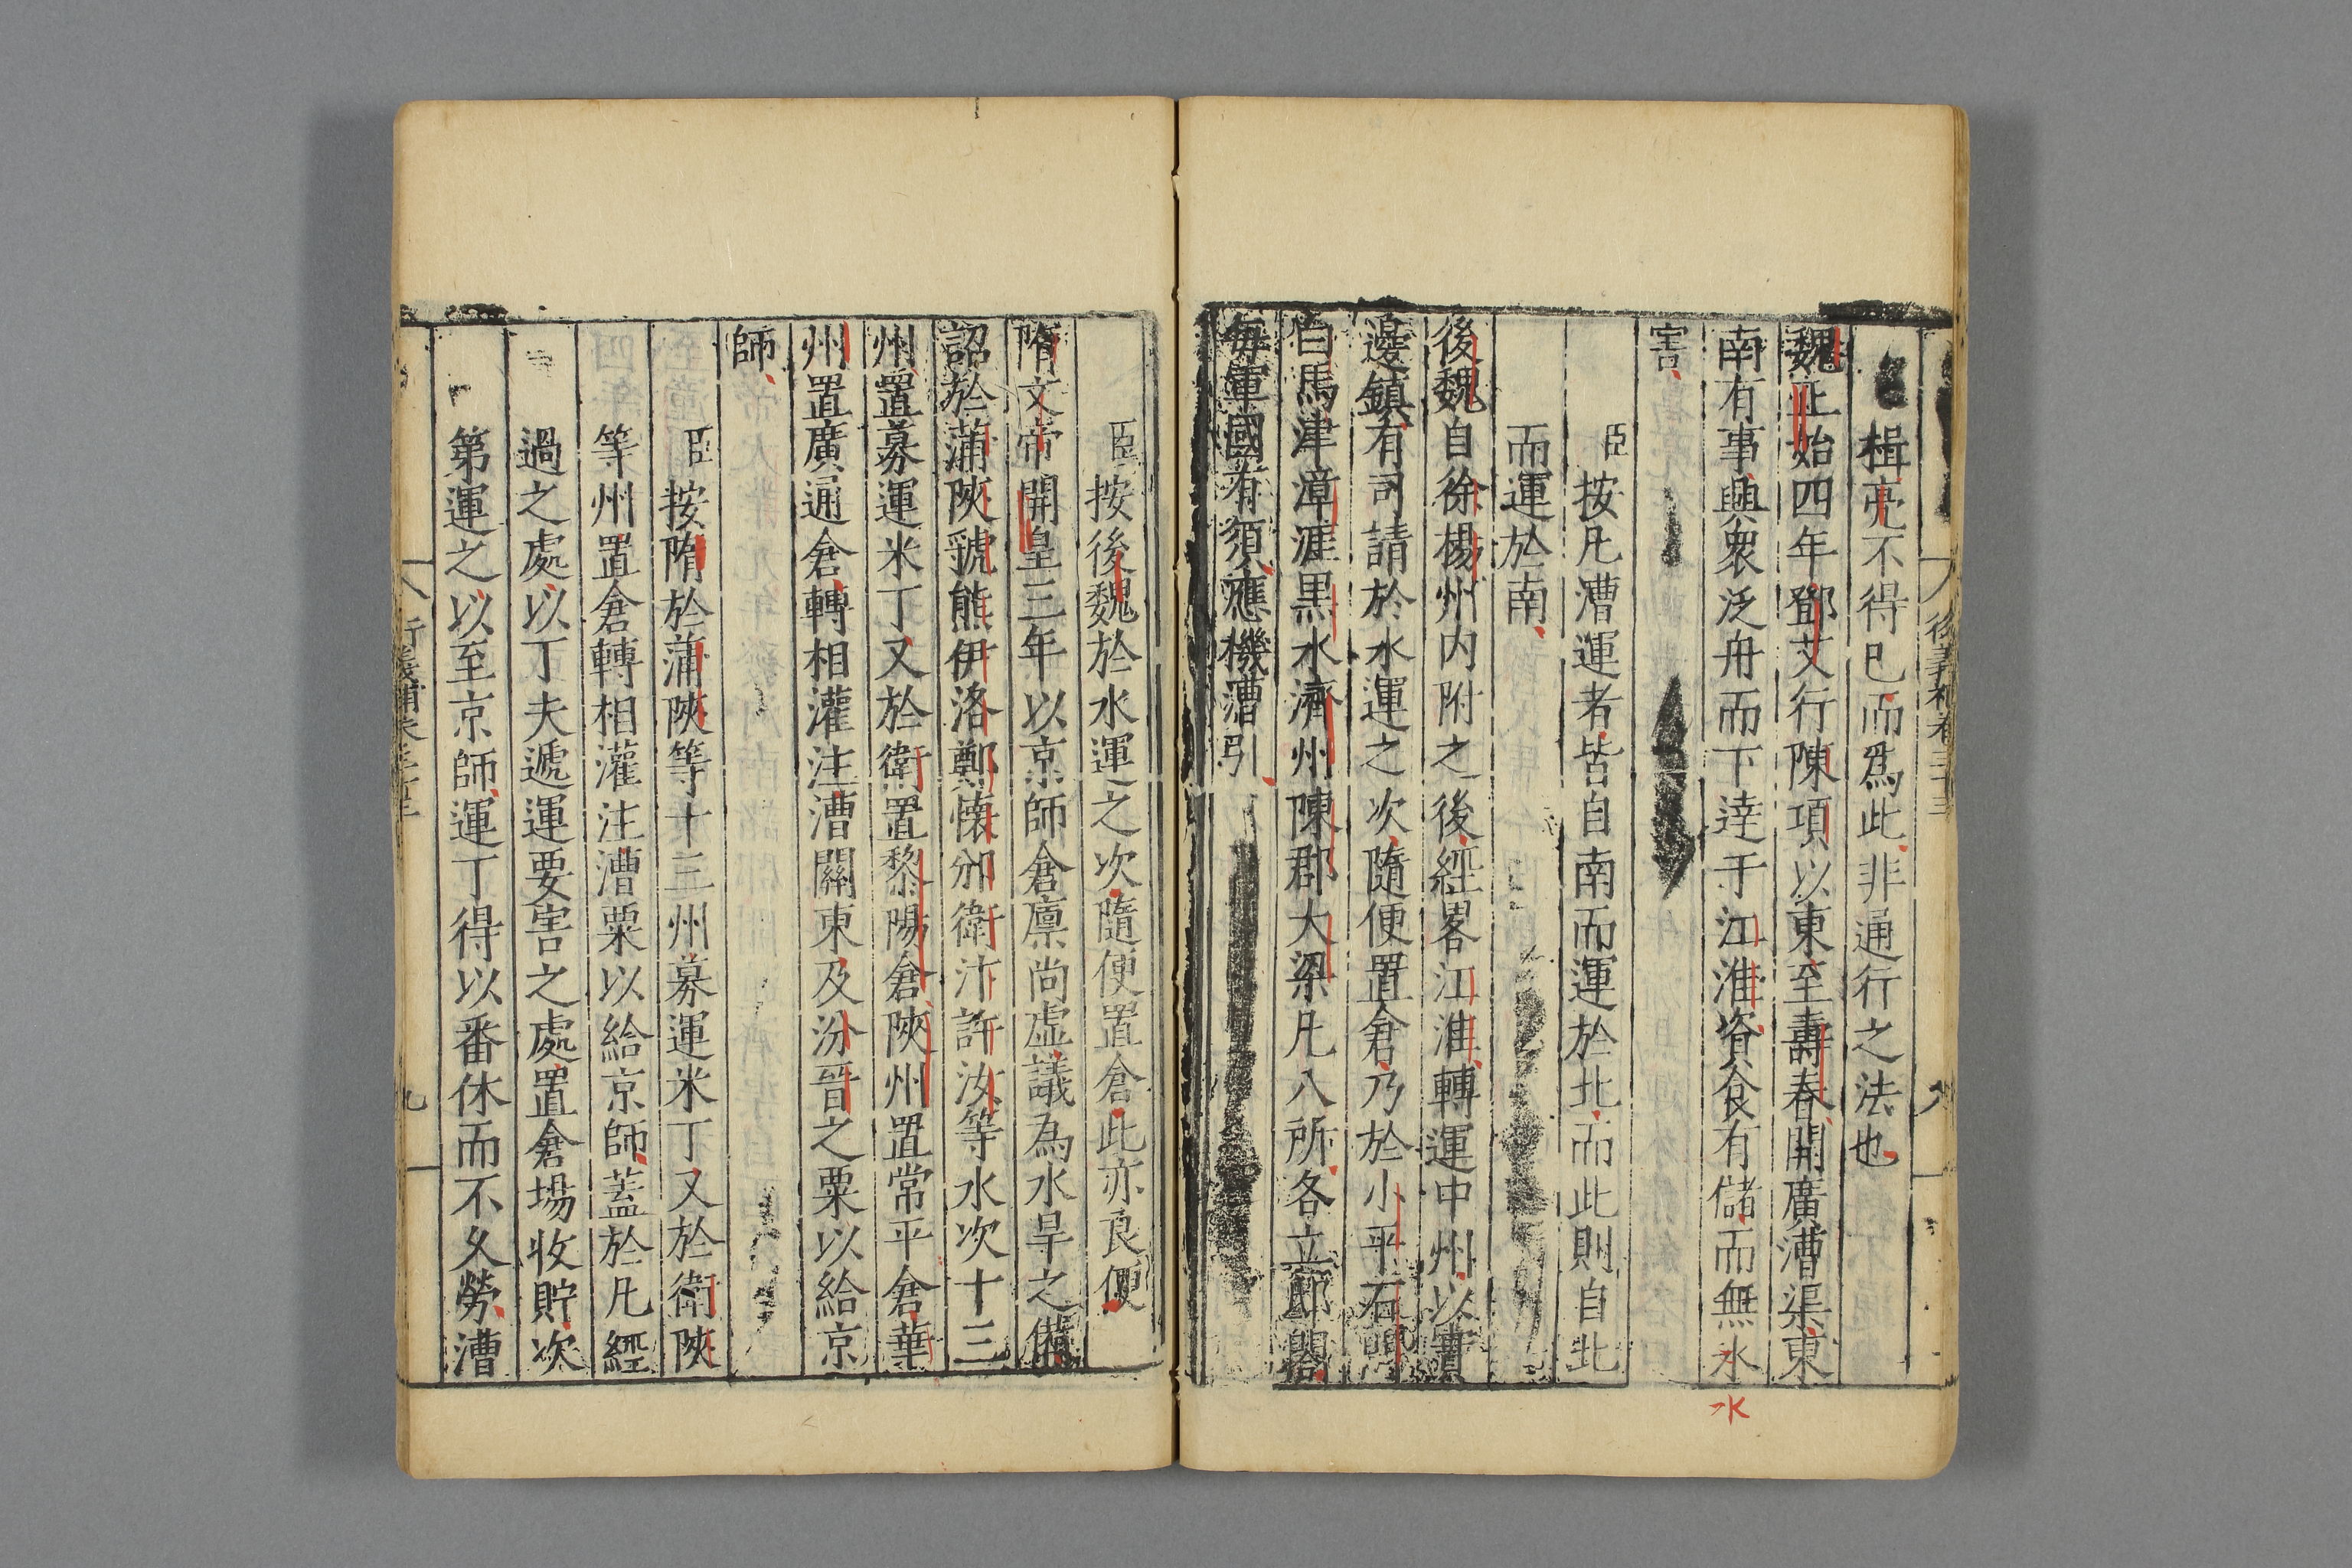 楫亮不得已而爲此非通行之法也
魏正始四年鄧艾行陳項以東至壽春開廣漕渠東
南有事興衆泛舟而下逹于江淮資食有儲而無水
水
害
臣按凡漕運者皆自南而運於北而此則自北
而運於南
後魏自徐楊州内附之後經畧江淮轉運中州以實
邊鎮有司請於水運之次隨便置倉乃於小平石門
白馬津漳涯黒水濟州陳郡大梁凡八所各立邸閣
每軍國有須應機漕引
臣按後魏於水運之次隨便置倉此亦良便
隋文帝開皇三年以京師倉廪尚虚議為水旱之備
詔於蒲陝虢熊伊洛鄭懷邠衛汴許汝等水次十三
州置募運米丁又於衛置黎陽倉陝州置常平倉華
州置廣通倉轉相灌注漕關東及汾晉之粟以給京
師
臣按隋於蒲陝等十三州募運米丁又於衛陝
等州置倉轉相灌注漕粟以給京師蓋於凡經
過之處以丁夫遞運要害之處置倉塲收貯次
第運之以至京師運丁得以番休而不久勞漕